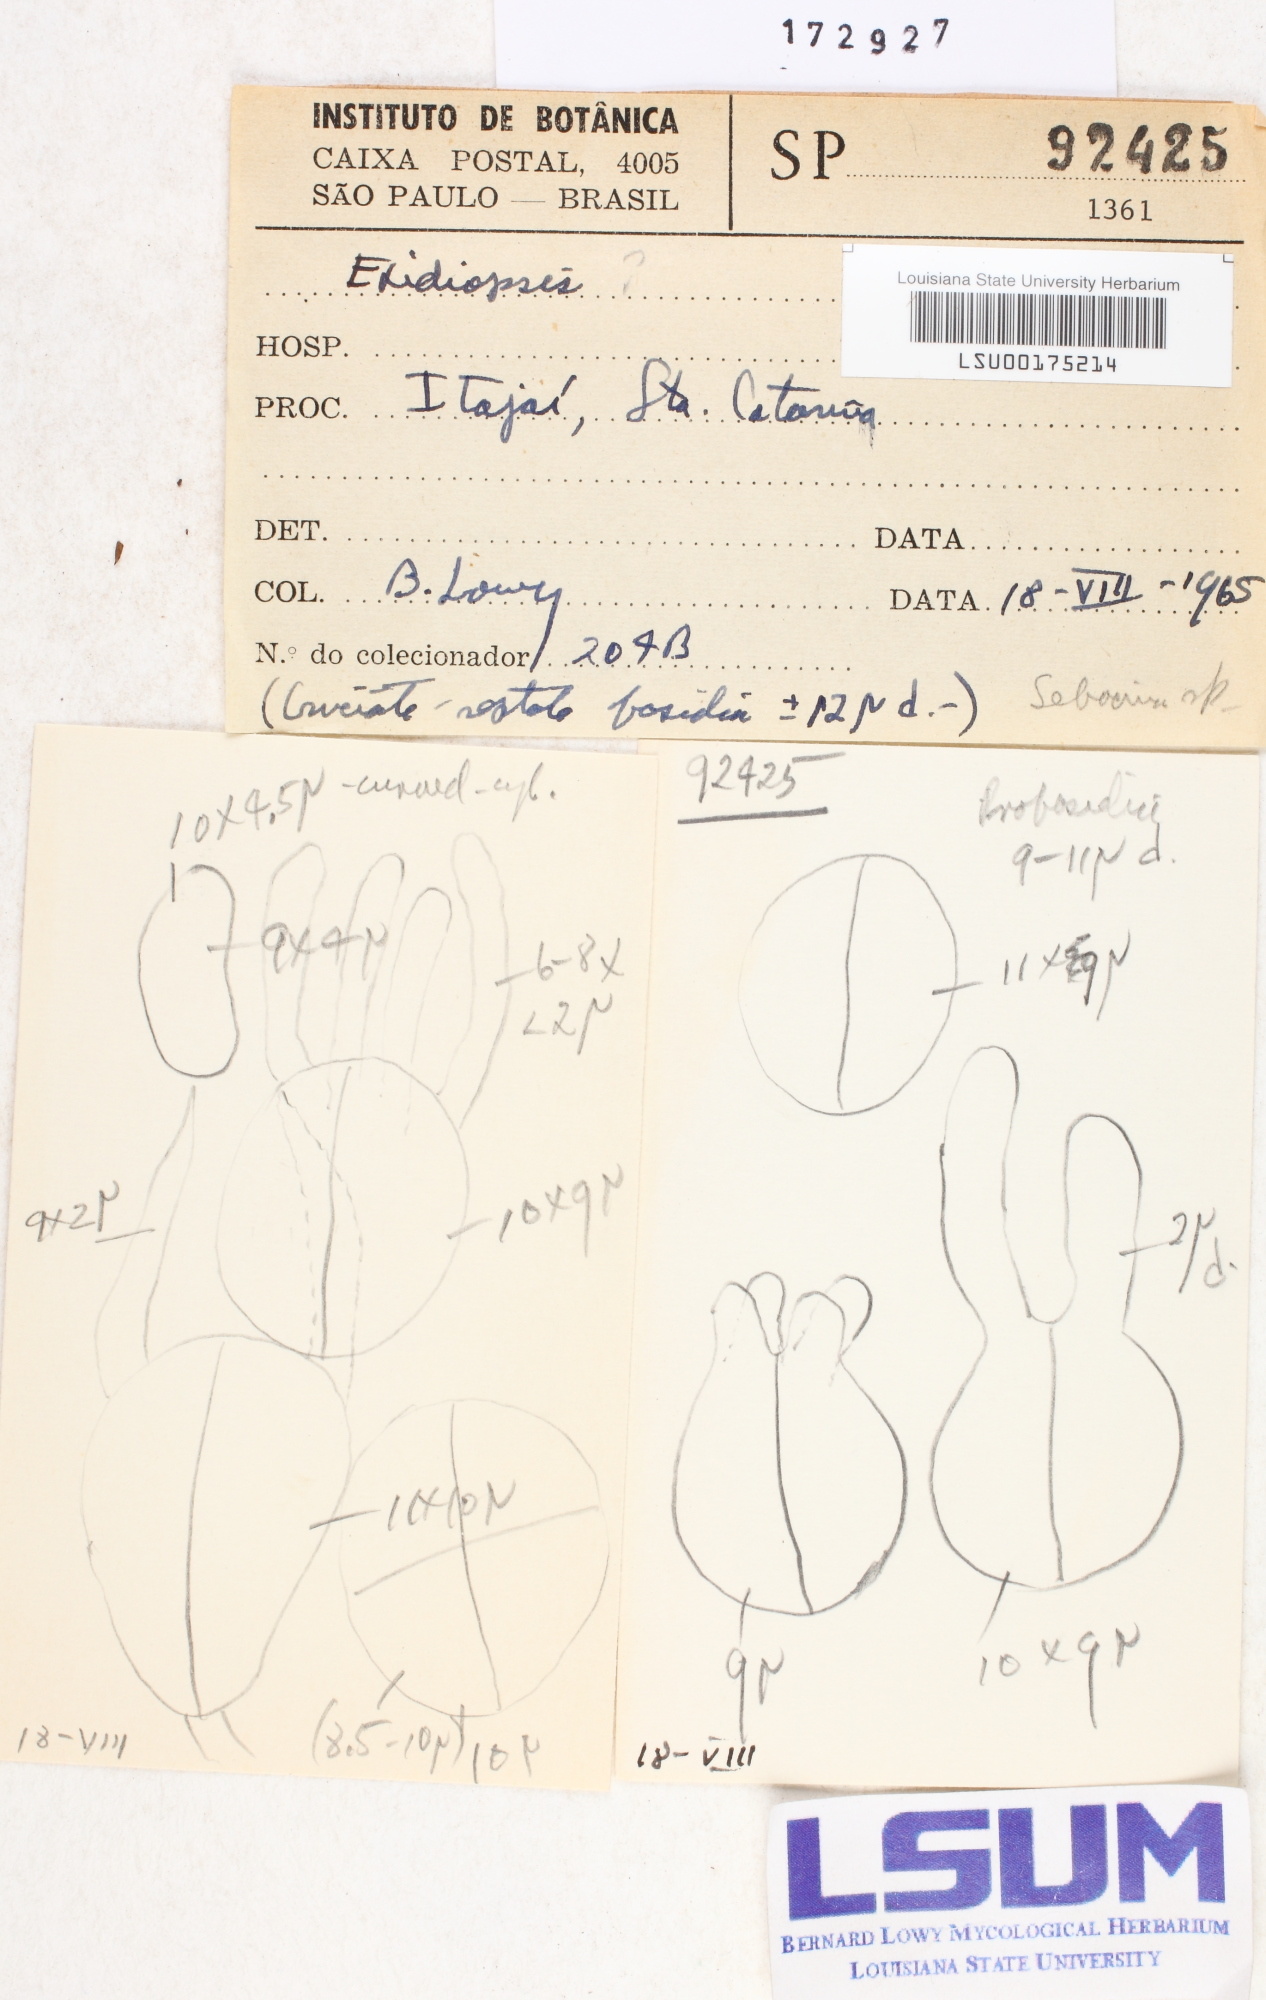 172927
INSTITUTO DE BOTÂNICA
CAIXA POSTAL, 4005
SÃO PAULO — BRASIL
SP 92425
1361
Exidiopsis ?
Louisiana State University Herbarium
LSU00175214
HOSP.
PROC. Itajaí, Sta. Catarina
DET. DATA
COL. B. Lowy DATA 18-VIII-1965
N.º do colecionador 204B
(Cruciate-septate basidia ± 12 μ d.-) Sebacina sp-
10x4,5μ -curved-cyl.
9x4μ
6-8x
<2μ
9x2μ
10x9μ
11x10μ
(8.5-10μ) 10μ
18-VIII
92425
Probasidia
9-11μ d.
11x9μ
2μ
d.
9μ
10x9μ
18-VIII
LSUM
BERNARD LOWY MYCOLOGICAL HERBARIUM
LOUISIANA STATE UNIVERSITY